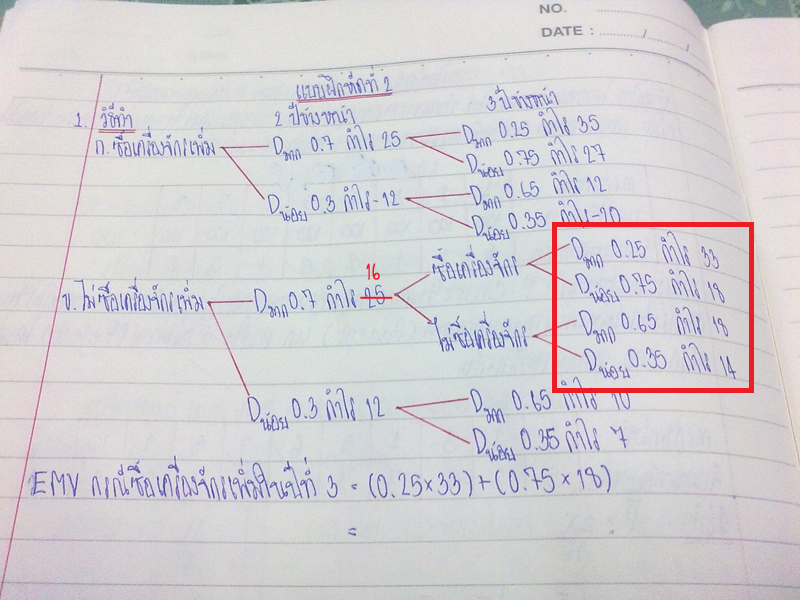 NO. ............
DATE : ............/............/............
แบบฝึกหัดที่ 2
1. วิธีทำ 2 ปีข้างหน้า 3 ปีข้างหน้า
ก. ซื้อเครื่องจักรเพิ่ม Dมาก 0.7 กำไร 25 Dมาก 0.25 กำไร 35
Dน้อย 0.75 กำไร 27
Dน้อย 0.3 กำไร -12 Dมาก 0.65 กำไร 12
Dน้อย 0.35 กำไร -20
ข. ไม่ซื้อเครื่องจักรเพิ่ม Dมาก 0.7 กำไร 25 16 ซื้อเครื่องจักร Dมาก 0.25 กำไร 33
Dน้อย 0.75 กำไร 18
ไม่ซื้อเครื่องจักร Dมาก 0.65 กำไร 18
Dน้อย 0.35 กำไร 14
Dน้อย 0.3 กำไร 12 Dมาก 0.65 กำไร 10
Dน้อย 0.35 กำไร 7
EMV กรณีซื้อเครื่องจักรเพิ่มในปีที่ 3 = (0.25×33)+(0.75×18)
=